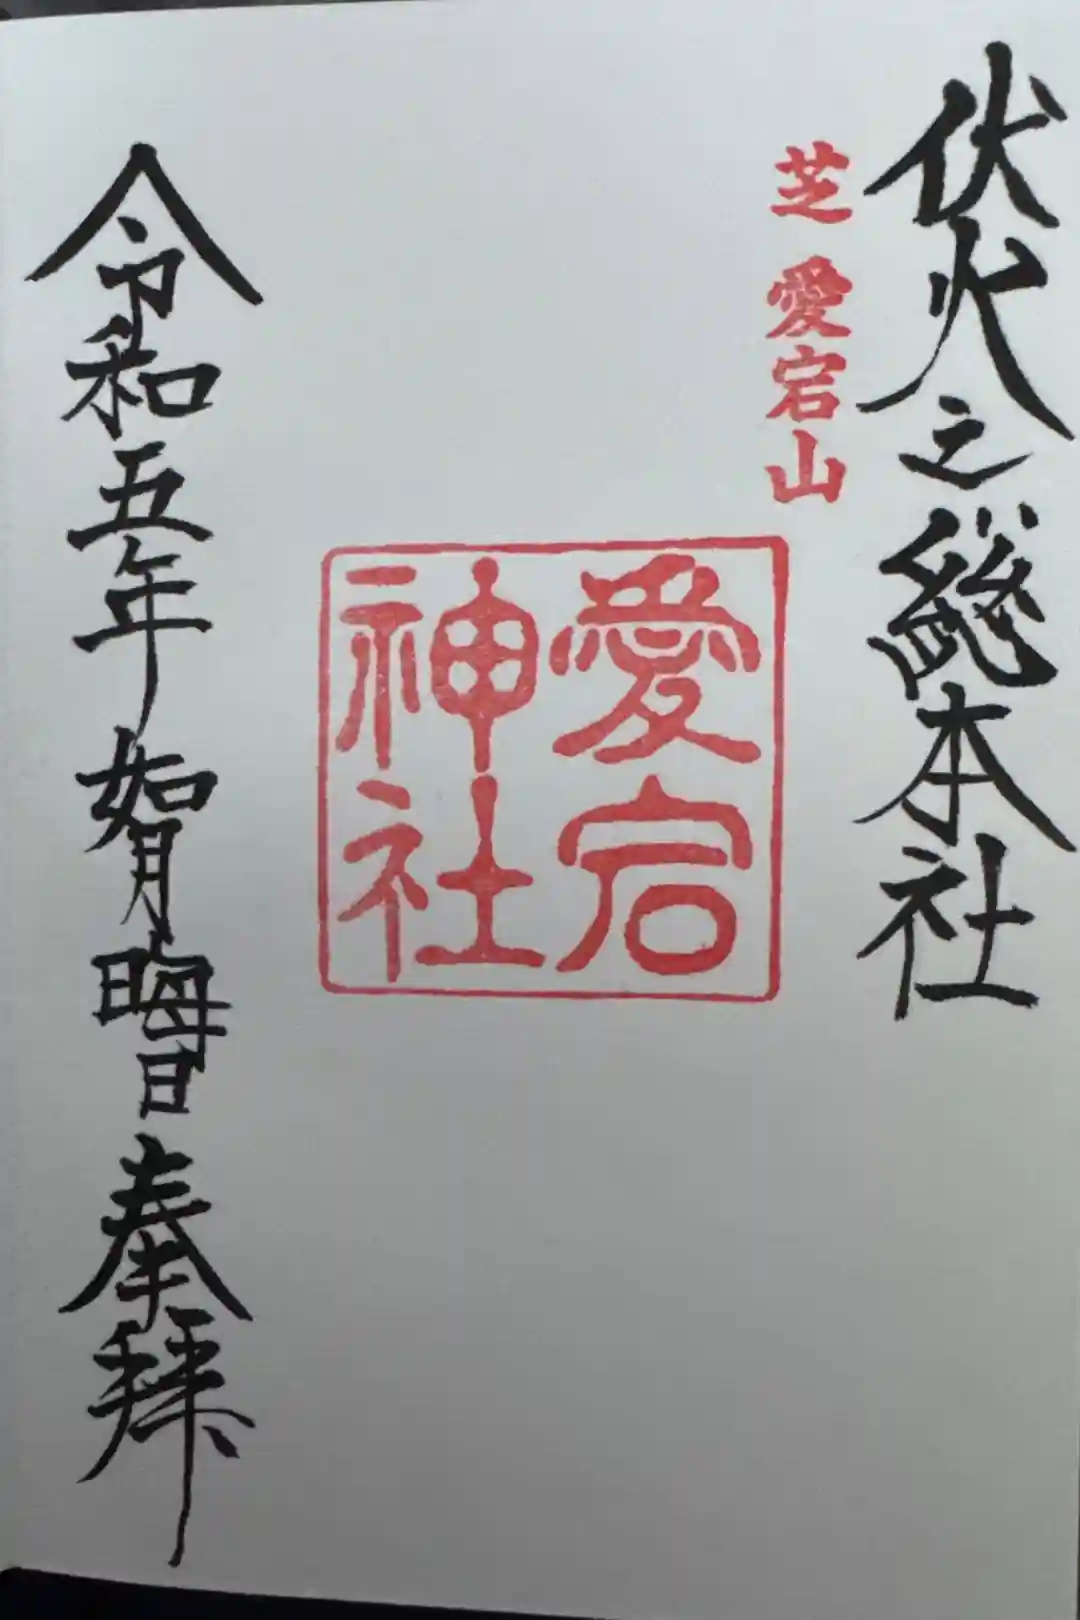 伏火之総本社
芝 愛宕山
愛宕
神社
令和五年 如月晦日 奉拝